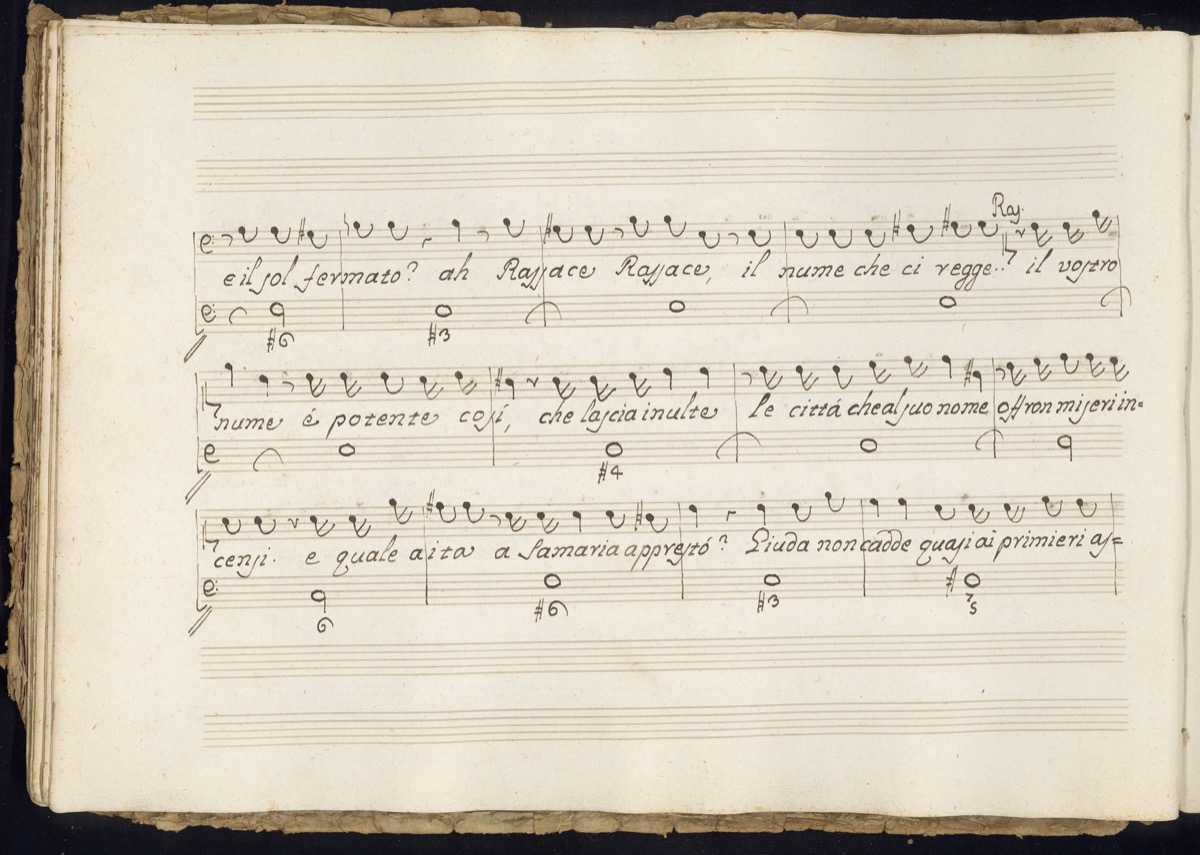 Ras.
e il sol fermato? ah Rassace Rassace, il nume che ci regge..? il vostro
#6 #3
nume é potente cosí, che lascia inulte le cittá che al suo nome offron miseri in=
#4
censi. e quale aita a Samaria apprestó? Giuda non cadde quasi ai primieri as=
6 #6 #3 # 7 5